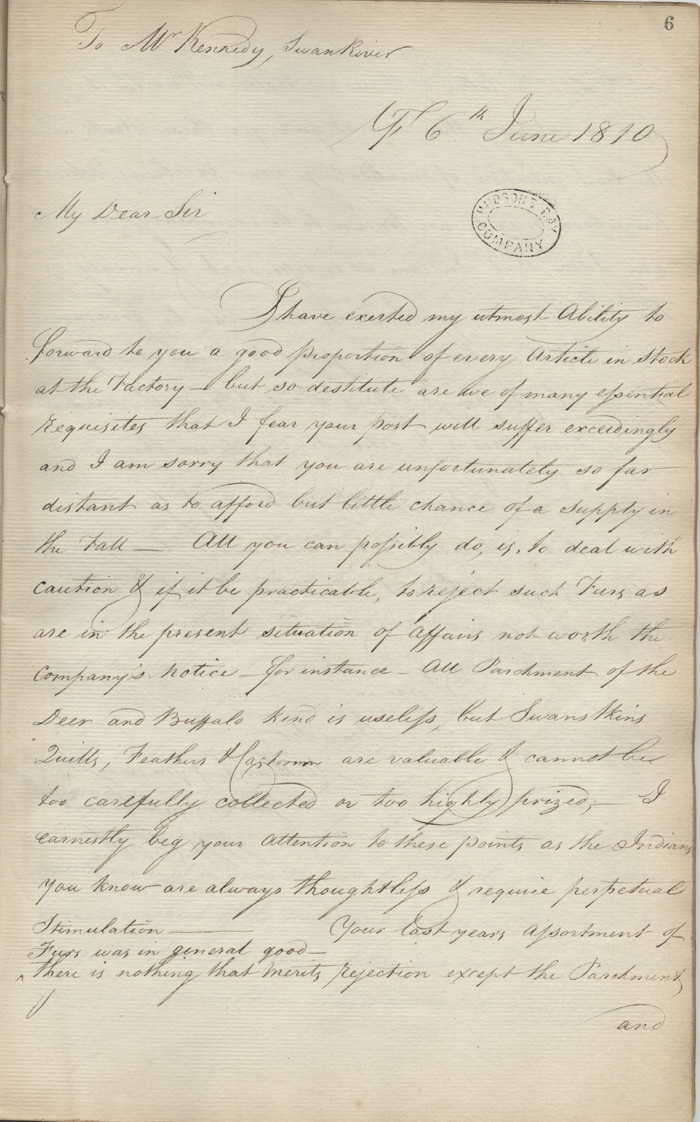 6
To Mr Kennedy, Swan River
YF 6th June 1810
HUDSON'S BAY
COMPANY
My Dear Sir
I have exerted my utmost Ability to
forward to you a good proportion of every Article in Stock
at the Factory — but so destitute are we of many essential
requisites that I fear your post will suffer exceedingly
and I am sorry that you are unfortunately so far
distant as to afford but little chance of a Supply in
the Fall — All you can possibly do, is, to deal with
caution & if it be practicable, to reject such Furs as
are in the present situation of Affairs not worth the
Company's Notice — for instance — All Parchment of the
Deer and Buffalo kind is useless, but Swans Skins
Quills, Feathers & Castorum are valuable & cannot be
too carefully collected or too highly prized; — I
earnestly beg your Attention to these points as the Indians
you know are always thoughtless & require perpetual
Stimulation — Your last years Assortment of
Furs was in general good —
^ there is nothing that merits rejection except the Parchment,
and